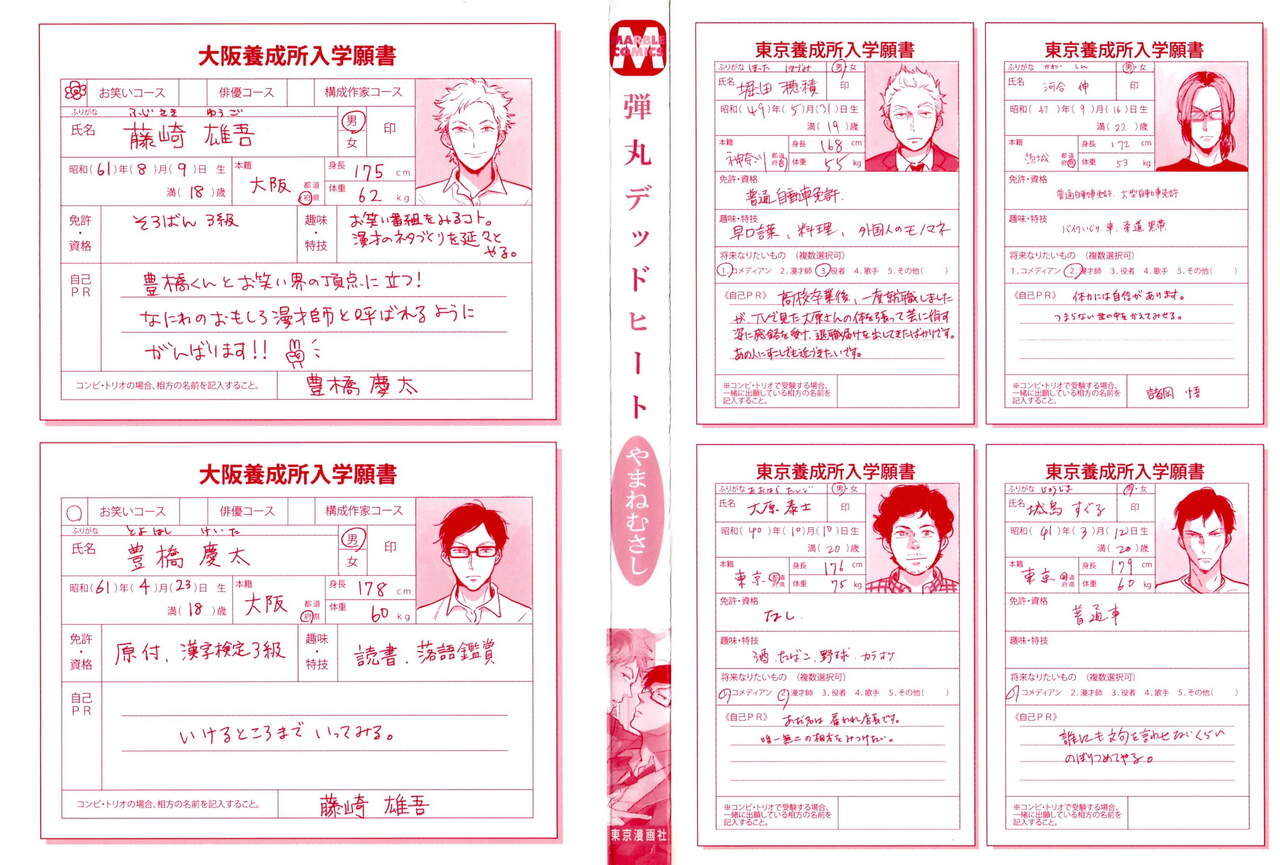 大阪養成所入学願書
お笑いコース 俳優コース 構成作家コース
ふりがな ふじさき ゆうご
氏名 藤崎 雄吾 男・女 印
昭和(61)年(8)月(9)日 生 満(18)歳
本籍 大阪 都道府県
身長 175 cm
体重 62 kg
免許・資格 そろばん 3級
趣味・特技 お笑い番組をみるコト。
漫才のネタづくりを延々とやる。
自己PR
豊橋くんとお笑い界の頂点に立つ!
なにわのおもしろ漫才師と呼ばれるように
がんばります!!
コンビ・トリオの場合、相方の名前を記入すること。 豊橋慶太
大阪養成所入学願書
○ お笑いコース 俳優コース 構成作家コース
ふりがな とよはし けいた
氏名 豊橋 慶太 男・女 印
昭和(61)年(4)月(23)日 生 満(18)歳
本籍 大阪 都道府県
身長 178 cm
体重 60 kg
免許・資格 原付、漢字検定3級
趣味・特技 読書、落語鑑賞
自己PR
いけるところまで いってみる。
コンビ・トリオの場合、相方の名前を記入すること。 藤崎 雄吾
MARBLE COMICS
弾丸デッドヒート
やまねむさし
東京漫画社
東京養成所入学願書
ふりがな ほった ほづみ 男・女
氏名 堀田 穂積 印
昭和(49)年(5)月(31)日生
満(19)歳
本籍 神奈川 都道府県
身長 168 cm
体重 55 kg
免許・資格
普通自動車免許
趣味・特技
早口言葉、料理、外国人のモノマネ
将来なりたいもの (複数選択可)
1.コメディアン 2.漫才師 3.役者 4.歌手 5.その他( )
《自己PR》 高校卒業後、一度就職しました
が、TVで見た大原さんの体を張って芸に徹す
姿に感銘を受け、退職届けを出してきたばかりです。
あの人にすこしでも近づきたいです。
※コンビ・トリオで受験する場合、
一緒に出願している相方の名前を
記入すること。
東京養成所入学願書
ふりがな かわい しん 男・女
氏名 河合 伸 印
昭和(47)年(9)月(16)日生
満(22)歳
本籍 茨城 都道府県
身長 172 cm
体重 53 kg
免許・資格
普通自動車免許、大型自動車免許
趣味・特技
バイクいじり、車、柔道 黒帯
将来なりたいもの (複数選択可)
1.コメディアン 2.漫才師 3.役者 4.歌手 5.その他( )
《自己PR》 体力には自信があります。
つまらない世の中をかえてみせる。
※コンビ・トリオで受験する場合、
一緒に出願している相方の名前を
記入すること。 諸岡 悟
東京養成所入学願書
ふりがな おおはら たいじ 男・女
氏名 大原 泰士 印
昭和(40)年(10)月(10)日生
満(20)歳
本籍 東京 都道府県
身長 176 cm
体重 75 kg
免許・資格
なし
趣味・特技
酒、たばこ、野球、カラオケ
将来なりたいもの (複数選択可)
1.コメディアン 2.漫才師 3.役者 4.歌手 5.その他( )
《自己PR》 あだ名は 雇われ店長です。
唯一無二の相方をみつけたい。
※コンビ・トリオで受験する場合、
一緒に出願している相方の名前を
記入すること。
東京養成所入学願書
ふりがな じょうじま 男・女
氏名 城島 すぐる 印
昭和(41)年(3)月(12)日生
満(20)歳
本籍 東京 都道府県
身長 179 cm
体重 60 kg
免許・資格
普通車
趣味・特技
将来なりたいもの (複数選択可)
1.コメディアン 2.漫才師 3.役者 4.歌手 5.その他( )
《自己PR》
誰にも文句を言わせないくらい
のぼりつめてやる。
※コンビ・トリオで受験する場合、
一緒に出願している相方の名前を
記入すること。